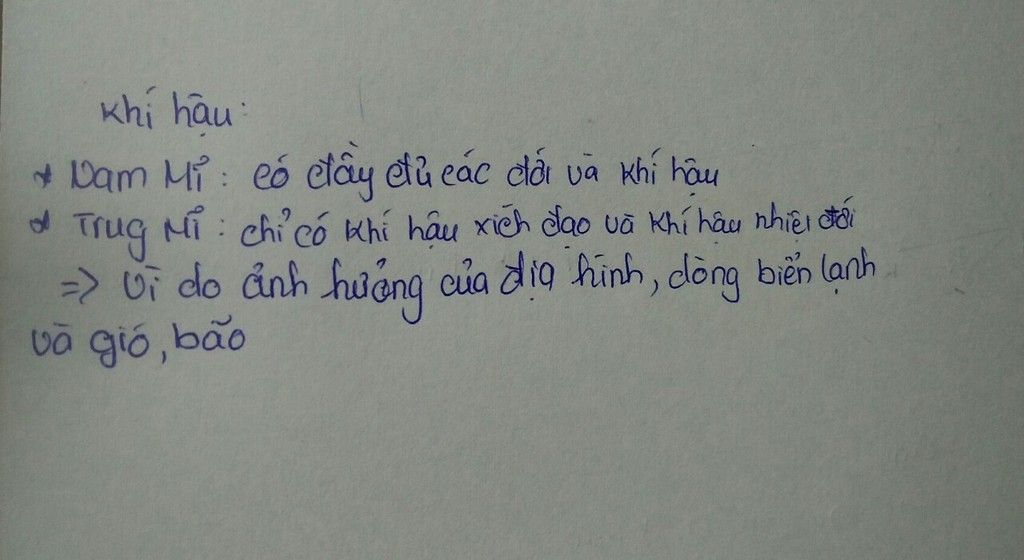 Khí hậu:
* Nam Mĩ : có đầy đủ các đới và khí hậu
* Trug Mĩ : chỉ có khí hậu xích đạo và khí hậu nhiệt đới
=> Vì do ảnh hưởng của địa hình, dòng biển lạnh
và gió, bão